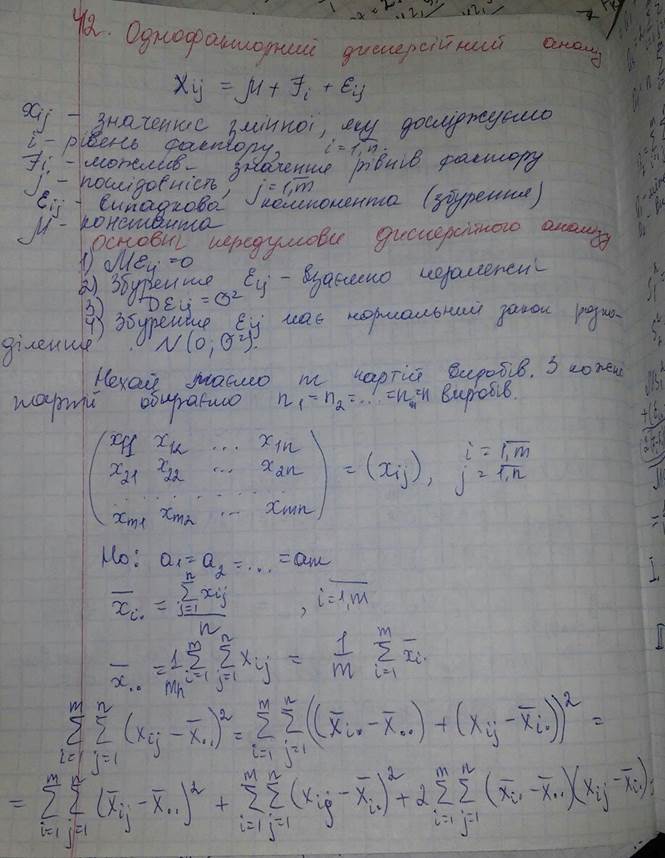 42. Однофакторний дисперсійний аналіз
Xij = μ + Fi + εij
xij – значення змінної, яку досліджуємо
i – рівень фактору, i = 1,n
Fi – можлив. значення рівнів фактору
j – послідовність, j = 1,m
εij – випадкова компонента (збурення)
μ – константа
Основні передумови дисперсійного аналізу
1) Mεij = 0
2) Збурення εij – взаємно незалежні
3) Dεij = σ²
4) Збурення εij має нормальний закон розпо-
ділення . N(0; σ²).
Нехай маємо m партій виробів. З кожної
партії обираємо n1 = n2 = ... = nm = n виробів.
(x11 x12 ... x1n
x21 x22 ... x2n
. . . . . . . . . .
xm1 xm2 ... xmn) = (xij), i = 1,m j = 1,n
H0: a1 = a2 = ... = am
x̄i. = ∑j=1^n xij / n , i = 1,m
x̄.. = 1/mn ∑i=1^m ∑j=1^n xij = 1/m ∑i=1^m x̄i.
∑i=1^m ∑j=1^n (xij – x̄..)² = ∑i=1^m ∑j=1^n ((x̄i. – x̄..) + (xij – x̄i.))² =
= ∑i=1^m ∑j=1^n (x̄ij – x̄..)² + ∑i=1^m ∑j=1^n (xij – x̄i.)² + 2∑i=1^m ∑j=1^n (x̄i. – x̄..)(xij – x̄i.)